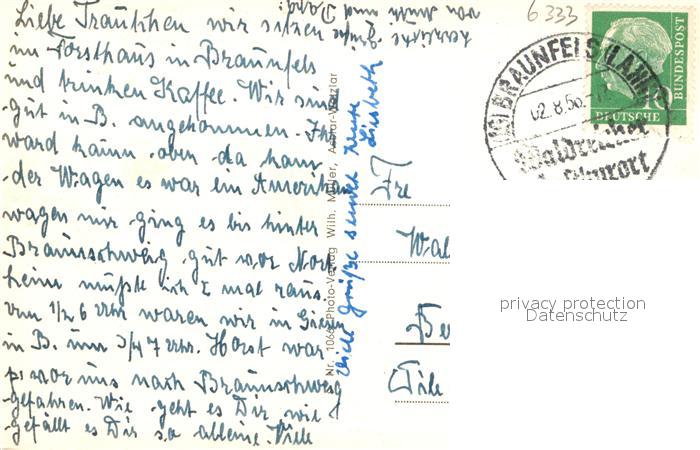 Liebe Trautchen wir sitzen
im Forsthaus in Braunfels
und trinken Kaffee. Wir sind
gut in B. angekommen. Ihr
ward kaum oben da kam
der Wagen es war ein Amerikan
wagen mir ging es bis hinter
Braunschweig gut vor Nort
heim mußte ich 2 mal raus.
Um 1/2 6 Uhr waren wir in Giesen
in B. um 3/4 7 Uhr. Horst war
vor uns nach Braunschweig
gefahren. Wie geht es Dir, wie
gefällt es Dir so alleine. Viele
herzliche Grüße
von
und
Viele Grüße sendet Heute
Liesbeth
Nr. 1066 Photo-Verlag Wilh. Müller, Wetzlar
6333
BRAUNFELS (LAHN)
02.8.56
Kurort
10
DEUTSCHE
BUNDESPOST
Fr
Wal
Be
privacy protection
Datenschutz